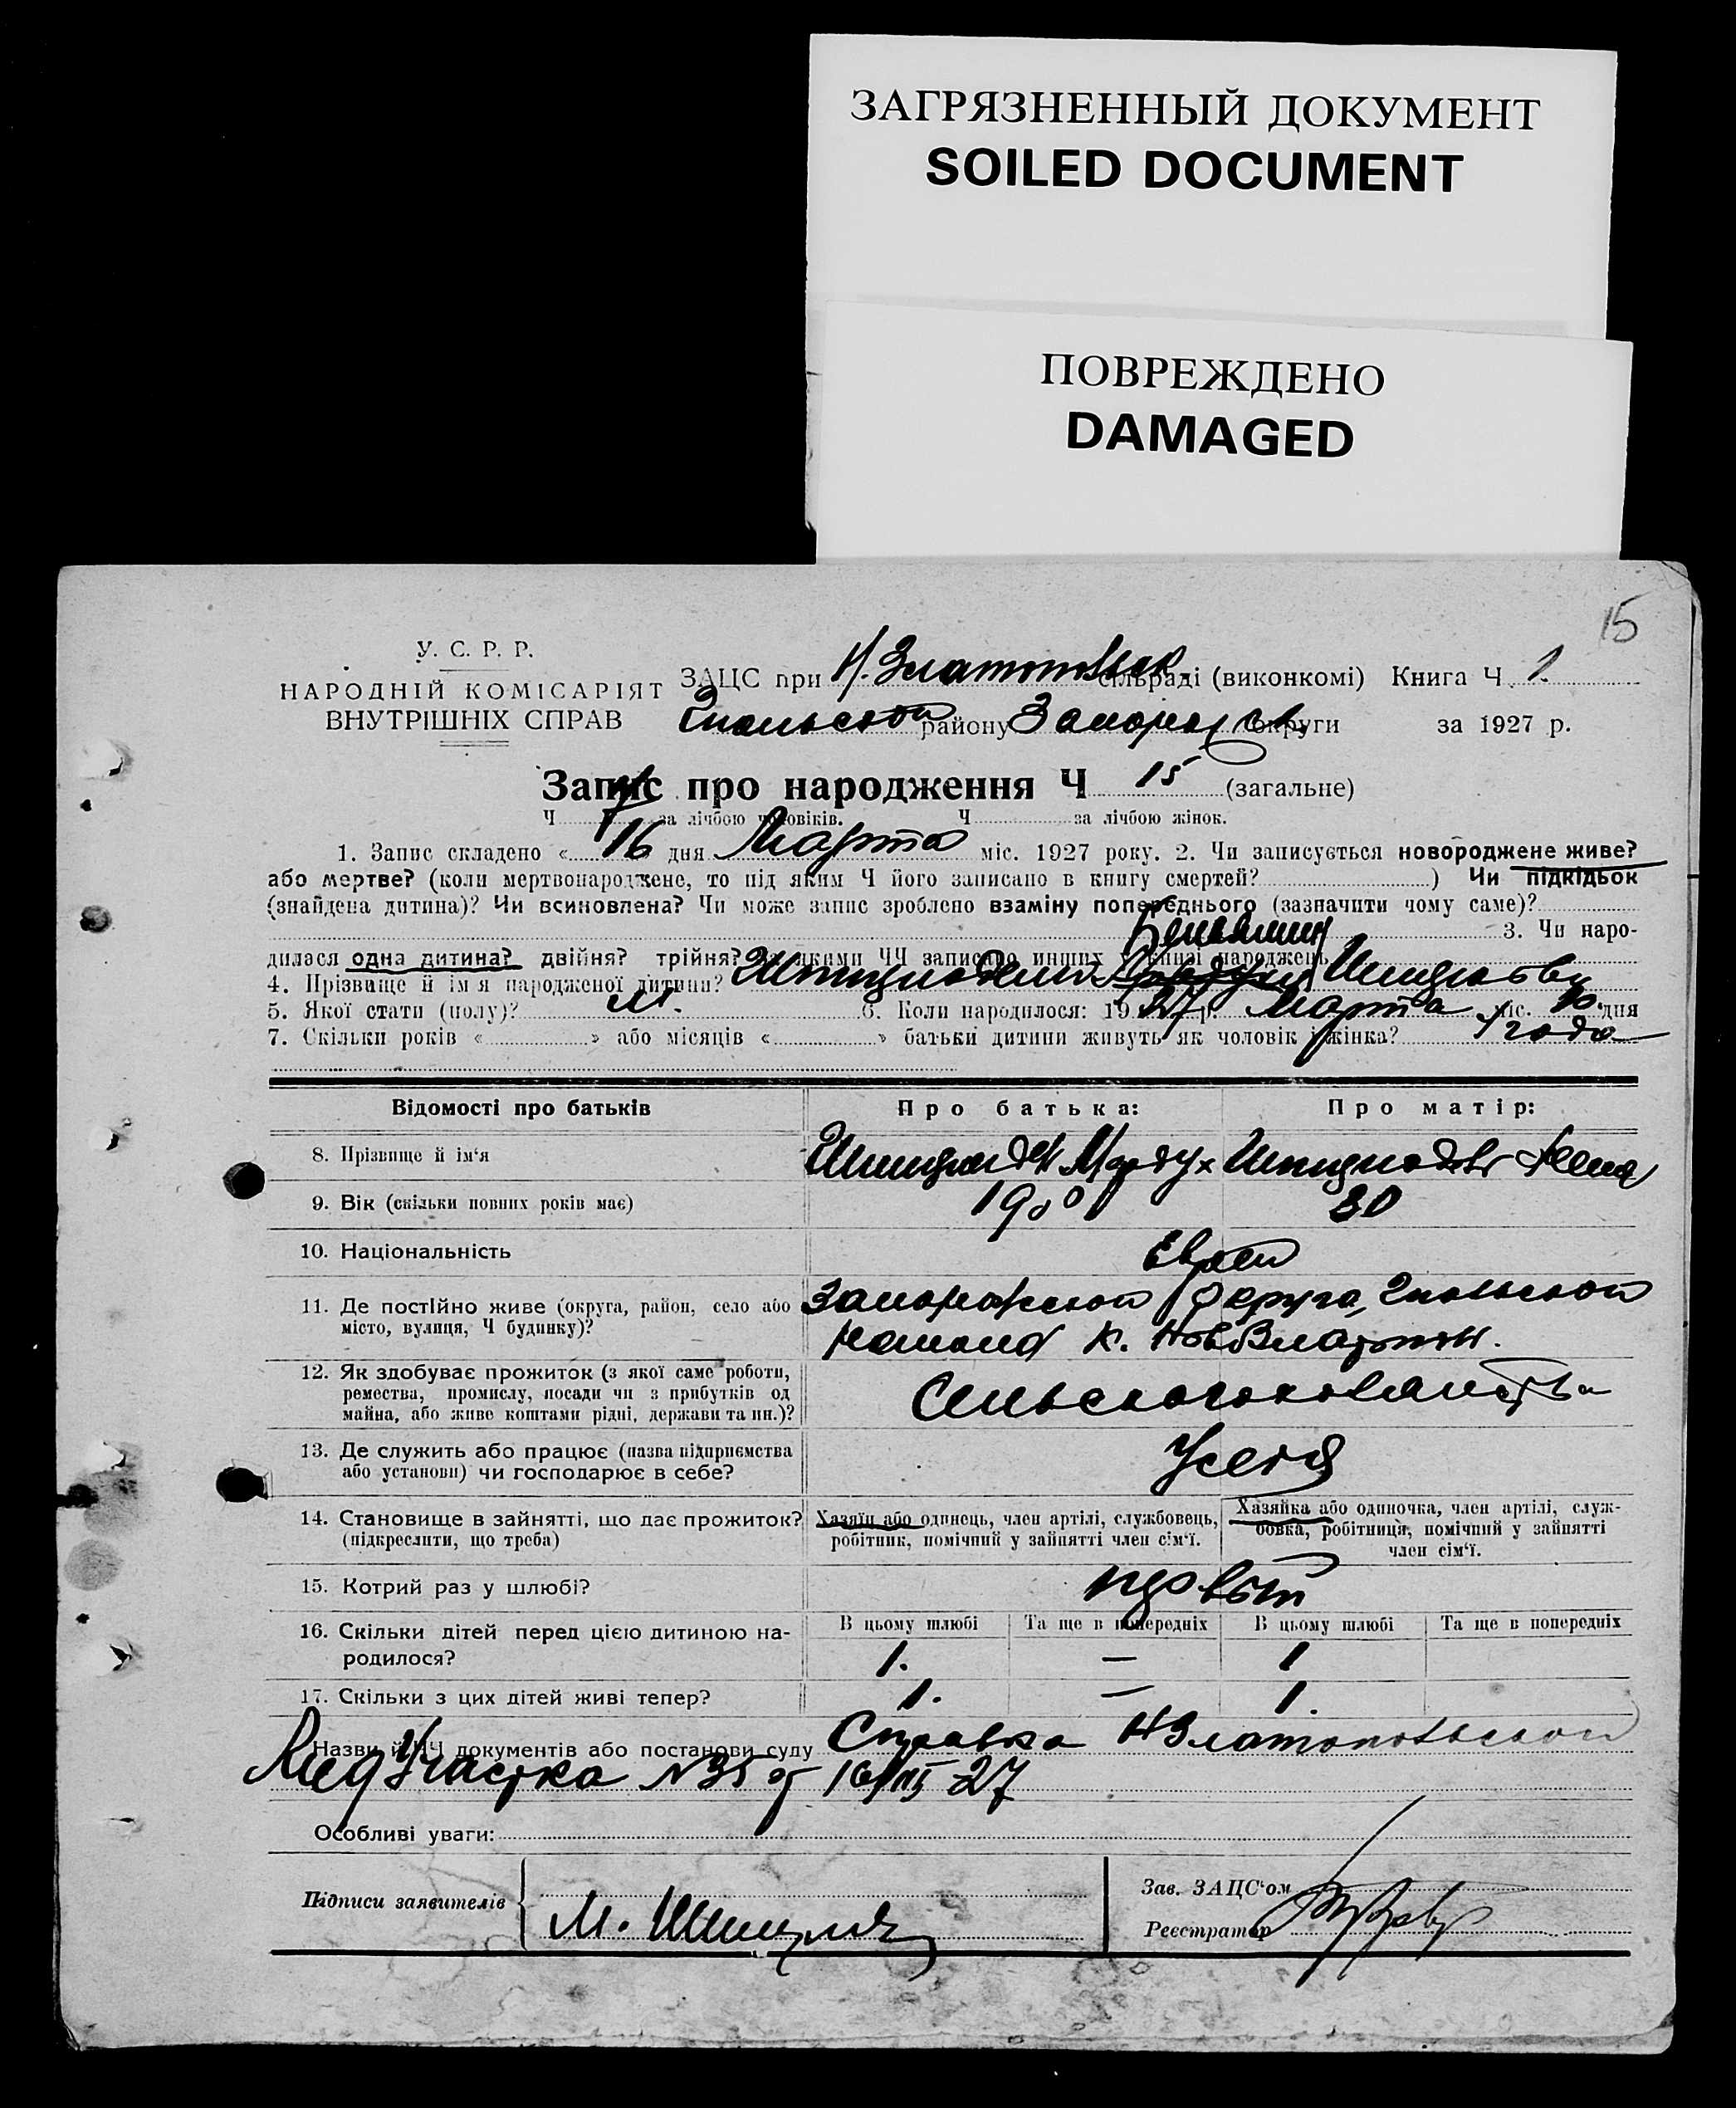 ЗАГРЯЗНЕННЫЙ ДОКУМЕНТ
SOILED DOCUMENT
ПОВРЕЖДЕНО
DAMAGED
15
У. С. Р. Р.
НАРОДНІЙ КОМІСАРІЯТ
ВНУТРІШНІХ СПРАВ
ЗАЦС при Н. Златополь сільраді (виконкомі) Книга Ч. 1
району Запорож округи за 1927 р.
Запис про народження Ч 15 (загальне)
Ч за лічбою чоловіків. Ч за лічбою жінок.
1. Запис складено « 16 » дня Марта міс. 1927 року. 2. Чи записується новороджене живе?
або мертве? (коли мертвонароджене, то під яким Ч його записано в книгу смертей? ) Чи підкідьок
(знайдена дитина)? Чи всиновлена? Чи може запис зроблено взаміну попереднього (зазначити чому саме)?
3. Чи наро-
дилася одна дитина? двійня? трійня? за якими ЧЧ записано инших у книзі народжень
4. Прізвище й ім'я народженої дитини?
5. Якої стати (полу)? м. 6. Коли народилося: 1927 р. Марта міс. 10 дня
7. Скільки років « » або місяців « » батьки дитини живуть як чоловік і жінка? года
Відомості про батьків
Про батька:
Про матір:
8. Прізвище й ім'я
9. Вік (скільки повних років має) 1900 30
10. Національність Еврей
11. Де постійно живе (округа, район, село або
місто, вулиця, Ч будинку)?
Запорожской Округа,
К.
12. Як здобуває прожиток (з якої саме роботи,
ремества, промислу, посади чи з прибутків од
майна, або живе коштами рідні, держави та ин.)?
13. Де служить або працює (назва підприємства
або установи) чи господарює в себе?
У себя
14. Становище в зайнятті, що дає прожиток?
(підкреслити, що треба)
Хазяїн або одинець, член артілі, службовець,
робітник, помічний у зайнятті член сім'ї.
Хазяйка або одиночка, член артілі, служ-
бовка, робітниця, помічний у зайнятті
член сім'ї.
15. Котрий раз у шлюбі?
16. Скільки дітей перед цією дитиною на-
родилося?
В цьому шлюбі Та ще в попередніх В цьому шлюбі Та ще в попередніх
1. — 1
17. Скільки з цих дітей живі тепер? 1. — 1.
Назви й ЧЧ документів або постанови суду Справка НЗлатопольской
Мед Участка N35 от 16/III-27
Особливі уваги:
Підписи заявителів
Зав. ЗАЦС'ом
Реєстратор